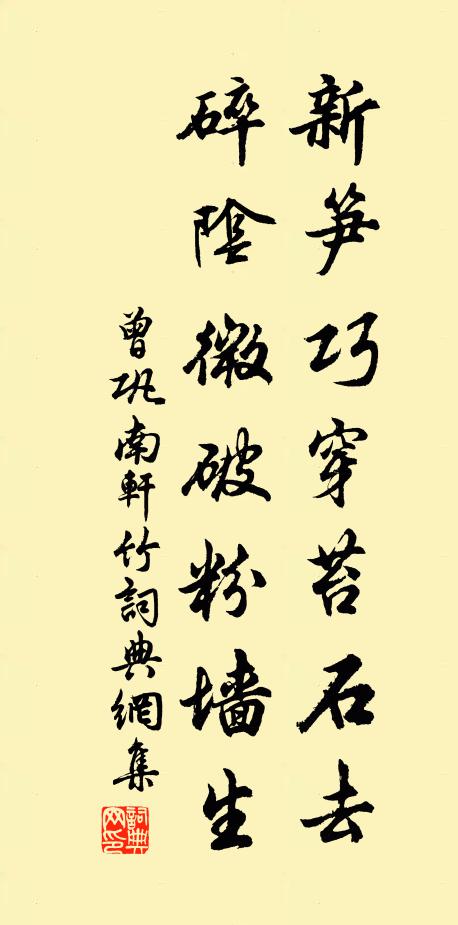 新笋巧穿苔石去
碎陰微破粉墙生
曾巩南軒竹詞典網集
詞典网印